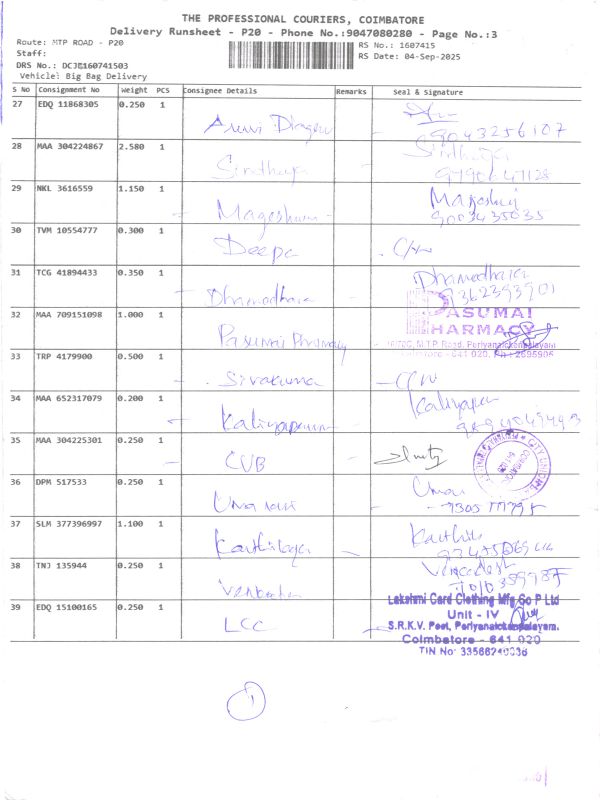 THE PROFESSIONAL COURIERS, COIMBATORE
Delivery Runsheet - P20 - Phone No.:9047080280 - Page No.:3
Route: MTP ROAD - P20
RS No.: 1607415
Staff:
RS Date: 04-Sep-2025
DRS No.: DCJE160741503
Vehicle: Big Bag Delivery
S No Consignment No Weight PCS Consignee Details Remarks Seal & Signature
27 EDQ 11868305 0.250 1
9043256107
28 MAA 304224867 2.580 1
Sinthuja Sinthuja
29 NKL 3616559 1.150 1
Mageshwari Mageshwari
9003435035
30 TVM 10554777 0.300 1
Deepa
31 TCG 41894433 0.350 1
Dhamodhara Dhamodhara
9362393901
32 MAA 709151098 1.000 1
Pasumai Pharmacy PASUMAI PHARMACY
M.T.P. Road, Periyanaickenpalayam
Coimbatore - 641 020, PH: 2695905
33 TRP 4179900 0.500 1
Sivakuma
34 MAA 652317079 0.200 1
Kaliyapa
35 MAA 304225301 0.250 1
CUB
36 DPM 517533 0.250 1
Uma
37 SLM 377396997 1.100 1
Karthi
38 TNJ 135944 0.250 1
39 EDQ 15100165 0.250 1
LCC
Lakshmi Card Clothing Mfg Co P Ltd
Unit - IV
S.R.K.V. Post, Periyanaickenpalayam.
Coimbatore - 641 020
TIN No: 33566240036
1